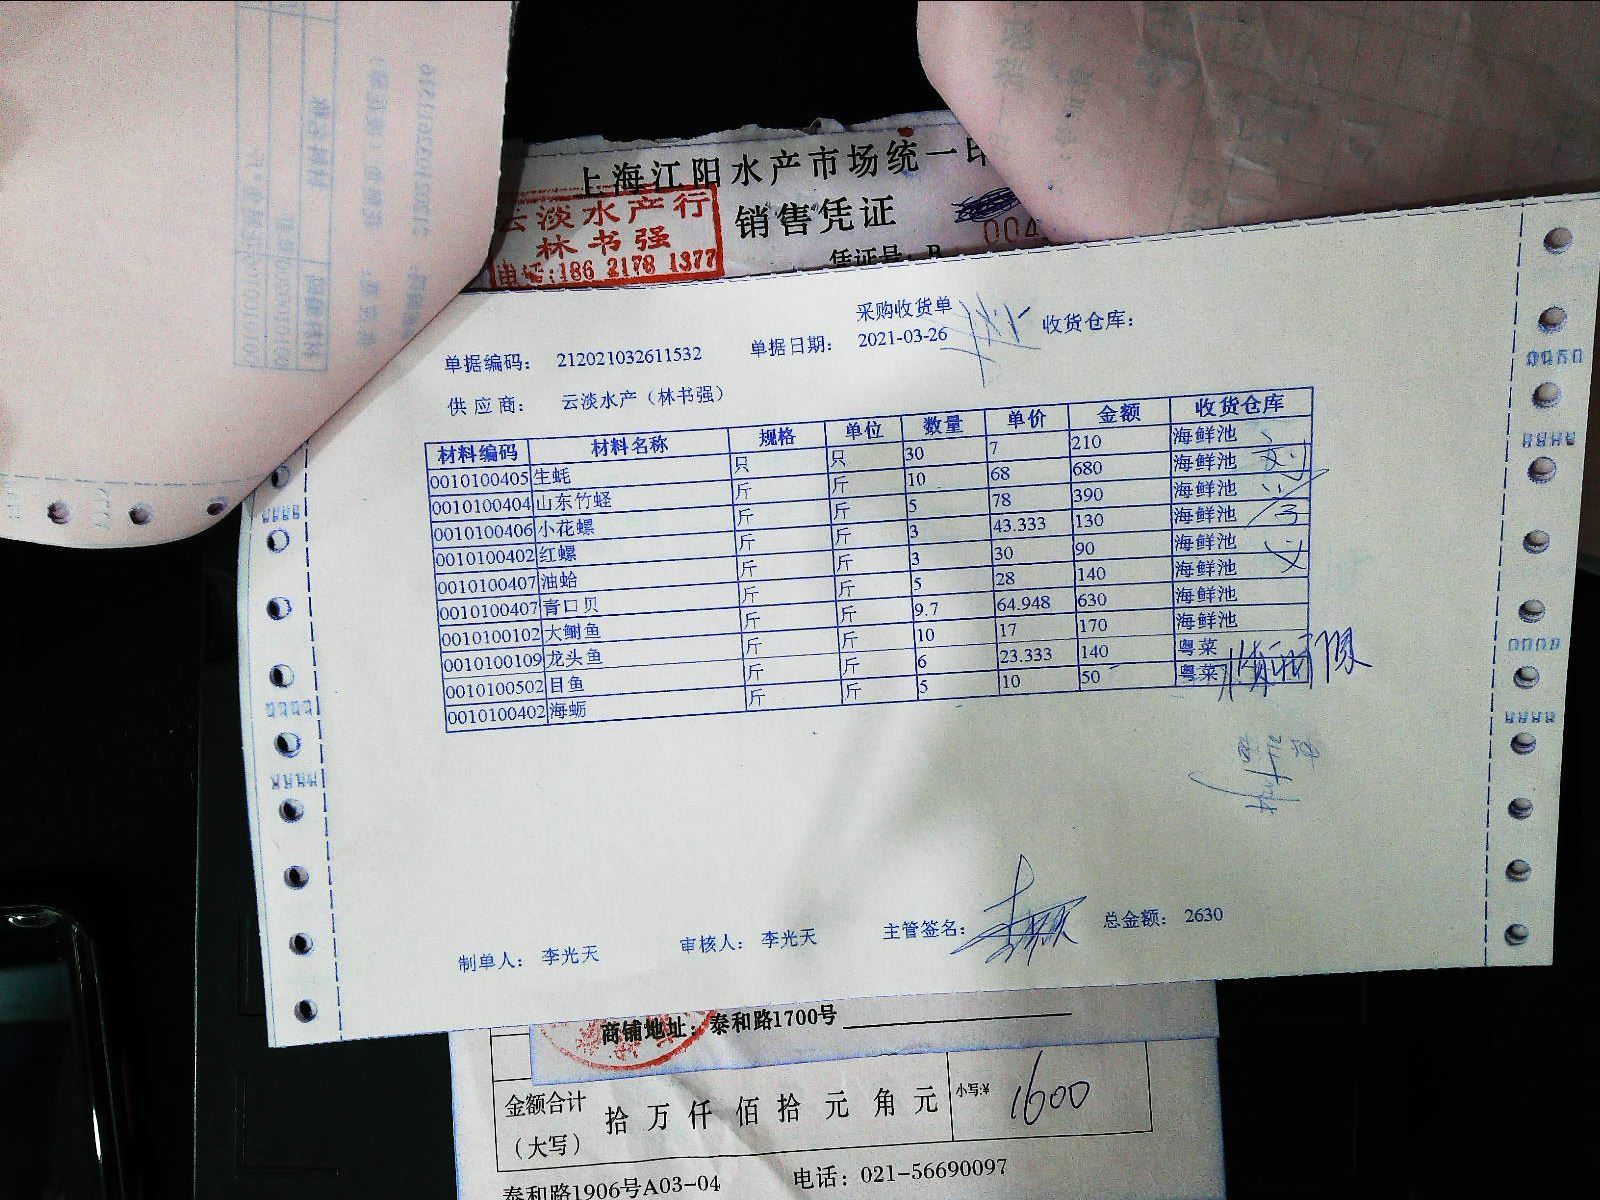 上海江阳水产市场统一印
云淡水产行
林书强
电话:186 2178 1377
销售凭证
004
凭证号: B
采购收货单
单据编码: 212021032611532 单据日期: 2021-03-26 收货仓库:
供应商: 云淡水产（林书强）
材料编码 材料名称 规格 单位 数量 单价 金额 收货仓库
0010100405 生蚝 只 只 30 7 210 海鲜池
0010100404 山东竹蛏 斤 斤 10 68 680 海鲜池
0010100406 小花螺 斤 斤 5 78 390 海鲜池
0010100402 红螺 斤 斤 3 43.333 130 海鲜池
0010100407 油蛤 斤 斤 3 30 90 海鲜池
0010100407 青口贝 斤 斤 5 28 140 海鲜池
0010100102 大鲥鱼 斤 斤 9.7 64.948 630 海鲜池
0010100109 龙头鱼 斤 斤 10 17 170 海鲜池
0010100502 目鱼 斤 斤 6 23.333 140 粤菜
0010100402 海蛎 斤 斤 5 10 50 粤菜
制单人: 李光天 审核人: 李光天 主管签名: 总金额: 2630
商铺地址: 泰和路1700号
金额合计 拾万仟佰拾元角元 小写:¥ 1600
（大写）
泰和路1906号A03-04 电话: 021-56690097